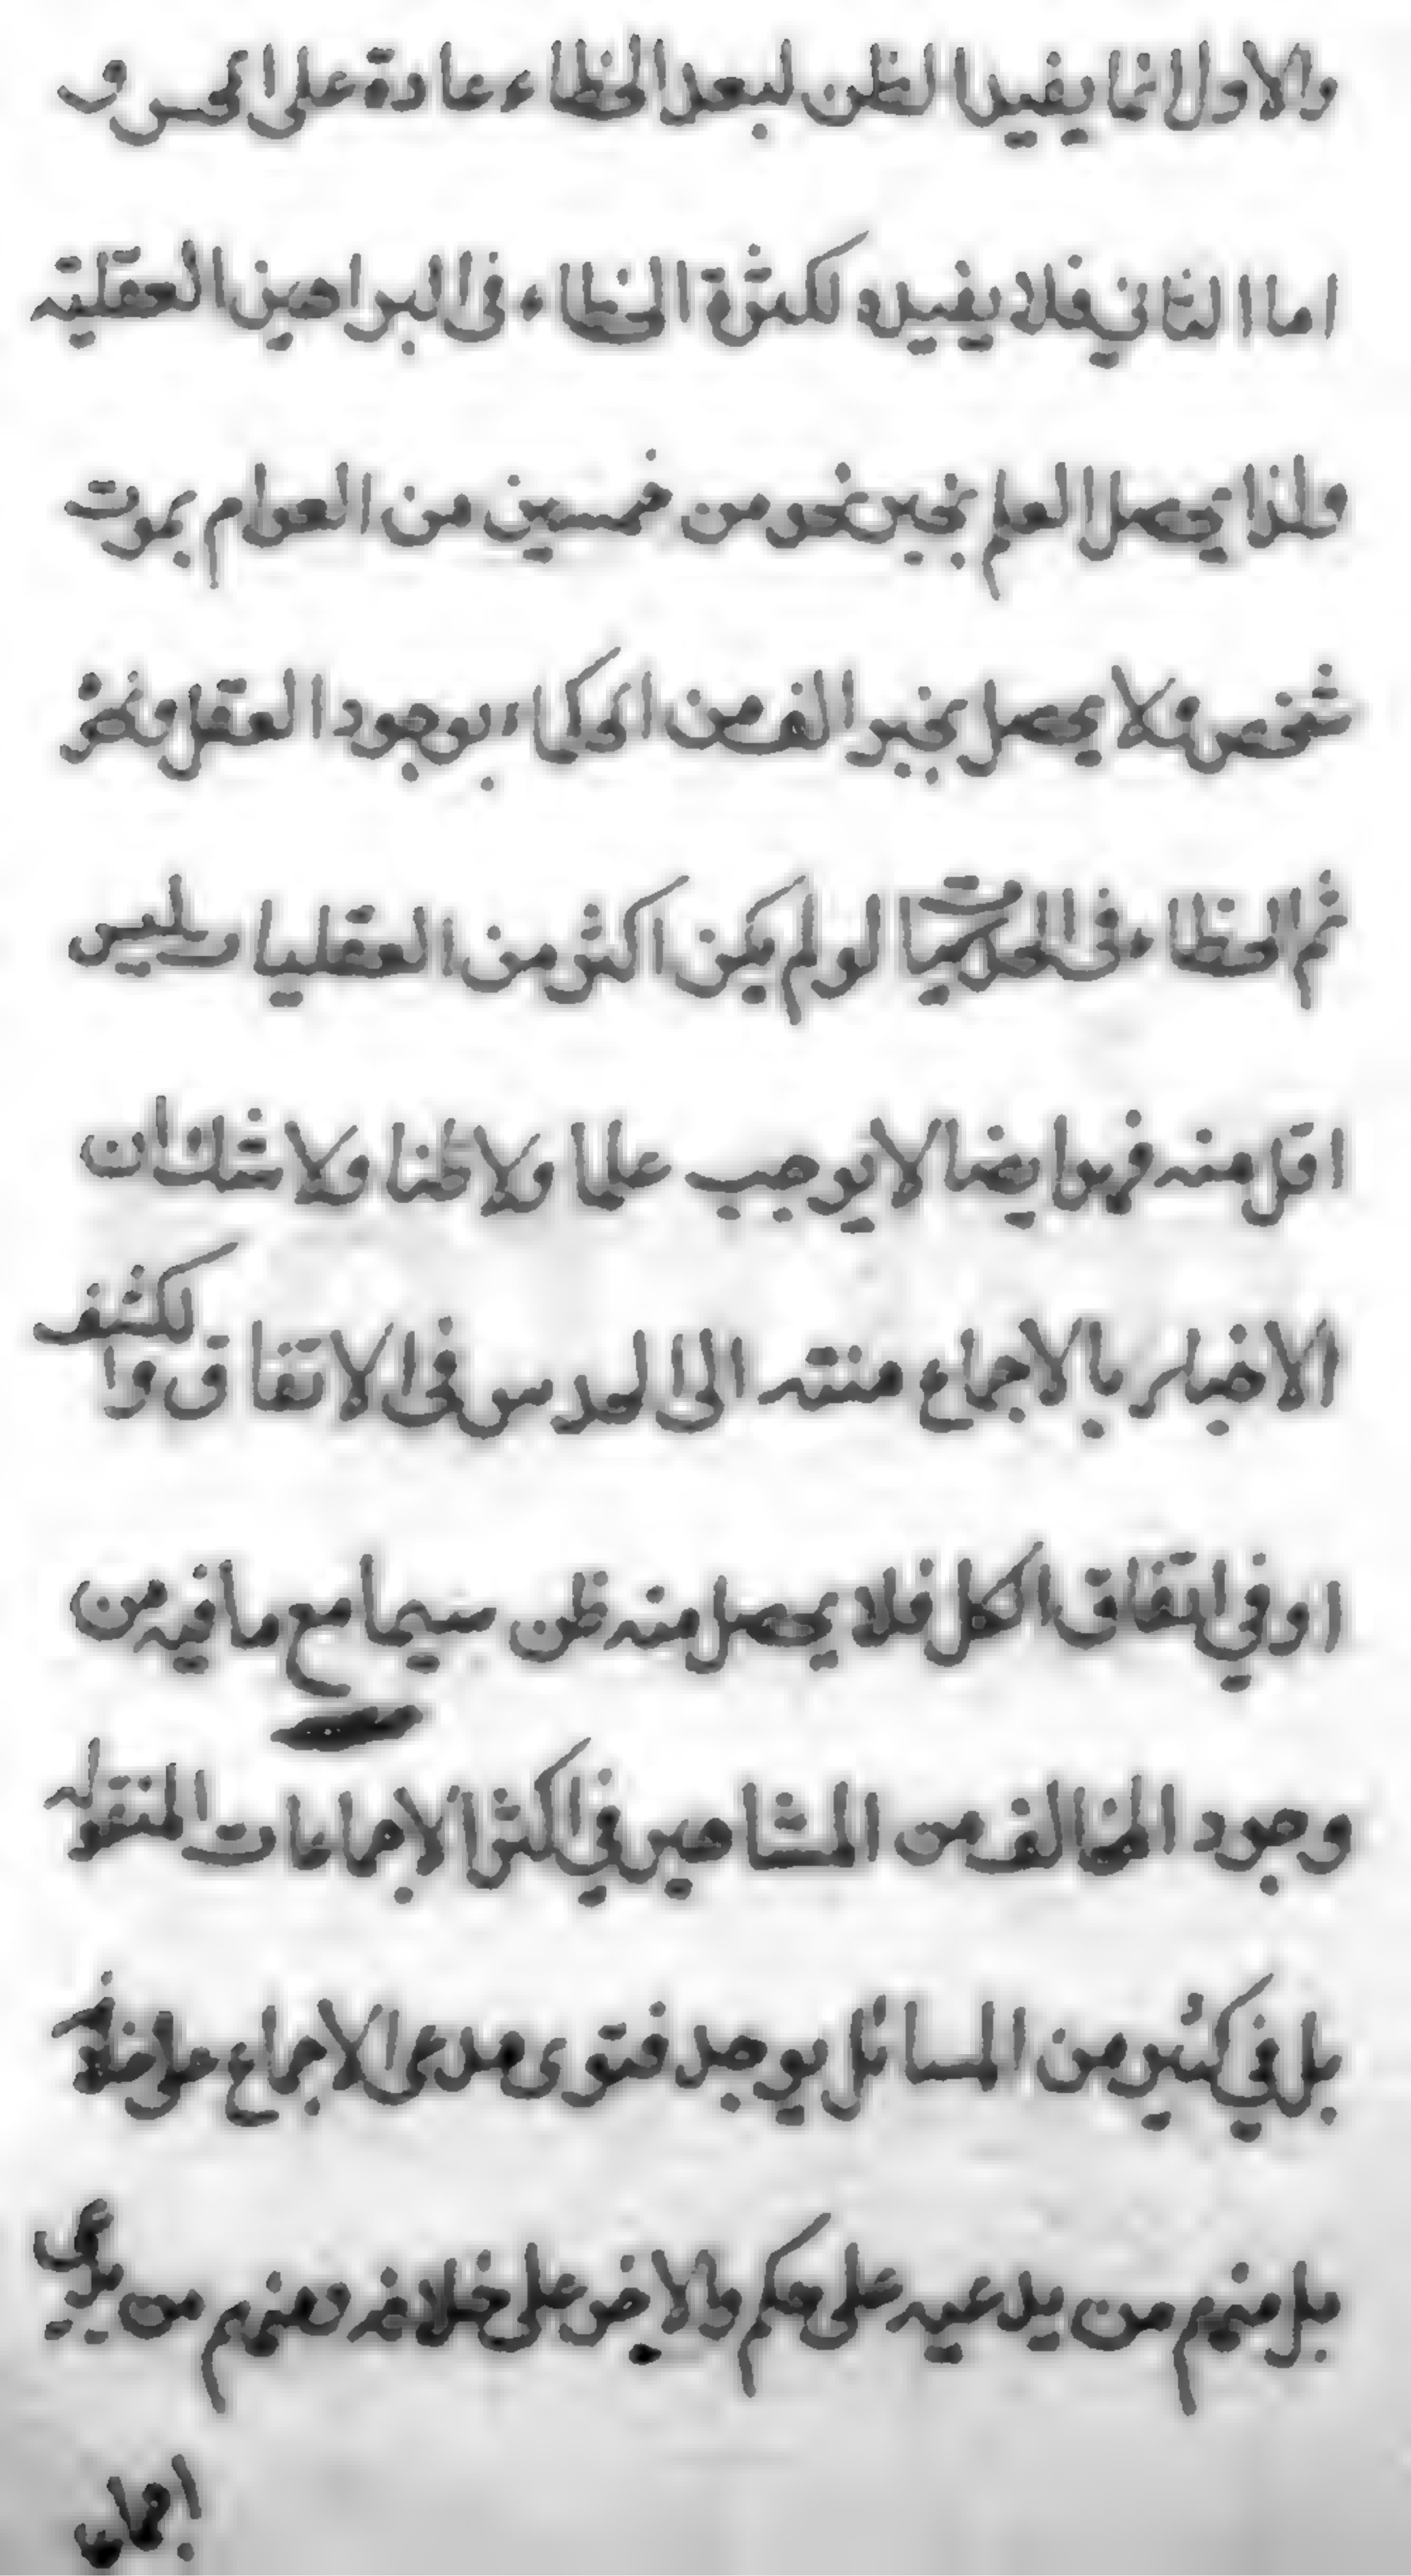 والاول انما يفيد الظن لبعد الخطاء عادة على الحس و
اما الثاني فلا يفيده لكثرة الخطاء في البراهين العقلية
ولذا يحصل العلم بخبر نحو من خمسين من العوام بموت
شخص ولا يحصل بخبر الف من الحكماء بوجود العقل ونحوه
ثم الخطاء في الحدسيات لو لم يكن اكثر من العقليات ليس
اقل منه فهو ايضا لا يوجب علما ولا ظنا ولا شك ان
الاخبار بالاجماع منته الى الحدس في الاتفاق والكشف
او في اتفاق الكل فلا يحصل منه ظن سيما مع ما فيه من
وجود المخالف من المشاهير في اكثر الاجماعات المنقوله
بل في كثير من المسائل يوجد فتوى مدعى الاجماع على خلافه
بل منهم من يدعيه على حكم والاخر على خلافه ومنهم من يدعى
اجمالى